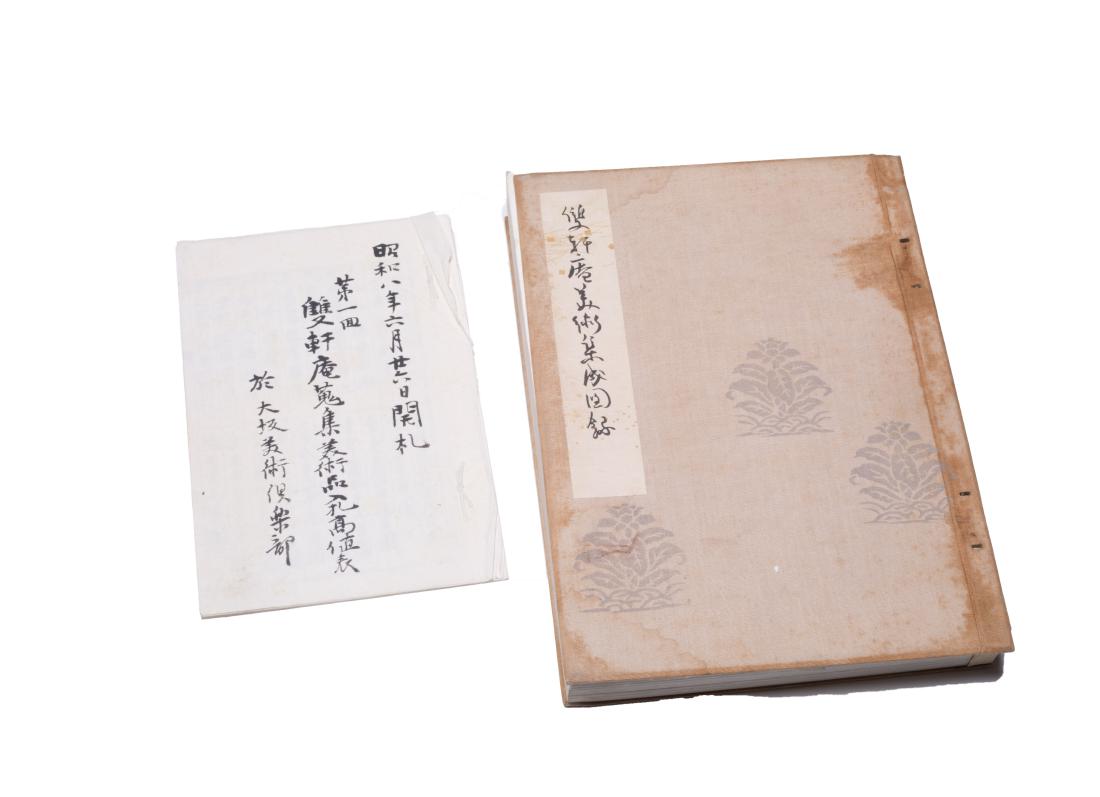 昭和八年六月廿六日開札
第一回
雙軒庵蒐集美術品入札高値表
於大坂美術倶楽部
雙軒庵美術集成図録